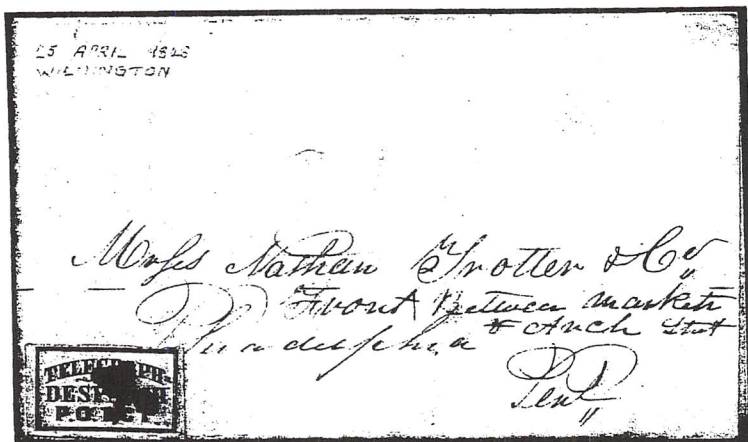 25 APRIL
WILMINGTON
Messrs Nathan Trotter & Co
Front Between Market
& Arch Street
Philadelphia
Pen
TELEGRAPH
DESPATCH
P.O.